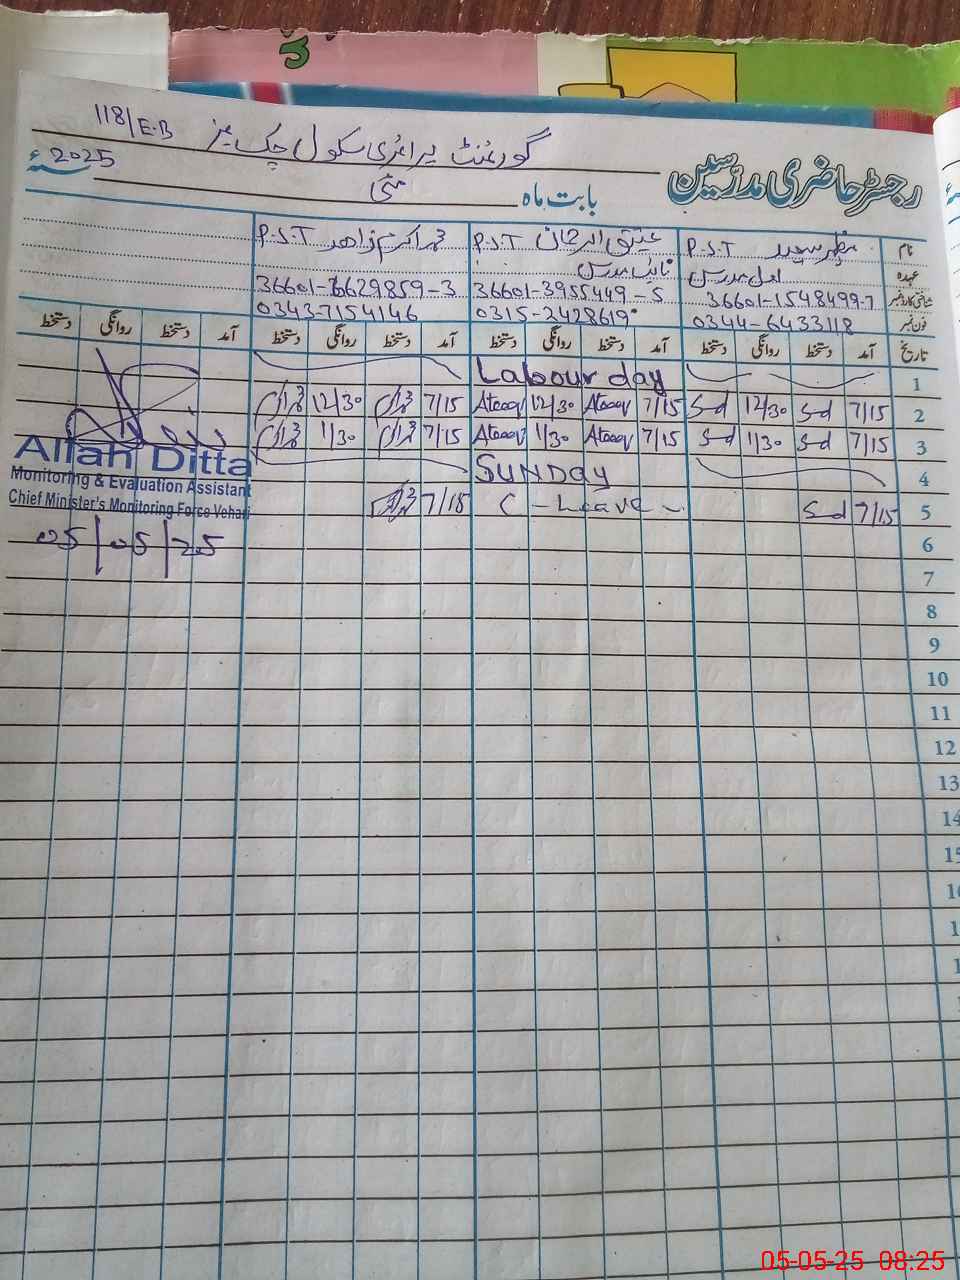 گورنمنٹ پرائمری سکول چک نمبر 118/E-B
رجسٹر حاضری مدرسین
بابت ماہ مئی 2025ء
نام P.S.T عتیق الرحمان P.S.T محمد اکرم زاہد P.S.T
عہدہ نائب مدرس
شناختی کارڈ نمبر 36601-1548499-7 36601-3955449-5 36601-6629859-3
فون نمبر 0344-6433118 0315-2428619 0343-7154146
تاریخ آمد دستخط روانگی دستخط آمد دستخط روانگی دستخط آمد دستخط روانگی دستخط آمد دستخط روانگی دستخط
1 Labour day
2 7/15 Sd 12/30 Sd 7/15 Ateeq 12/30 Ateeq 7/15 12/30
3 7/15 Sd 1/30 Sd 7/15 Ateeq 1/30 Ateeq 7/15 1/30
4 SUNDay
5 7/15 Sd C-Leave 7/15
6
7
8
9
10
11
12
13
14
Allah Ditta
Monitoring & Evaluation Assistant
Chief Minister's Monitoring Force Vehari
05/05/25
05-05-25 08:25